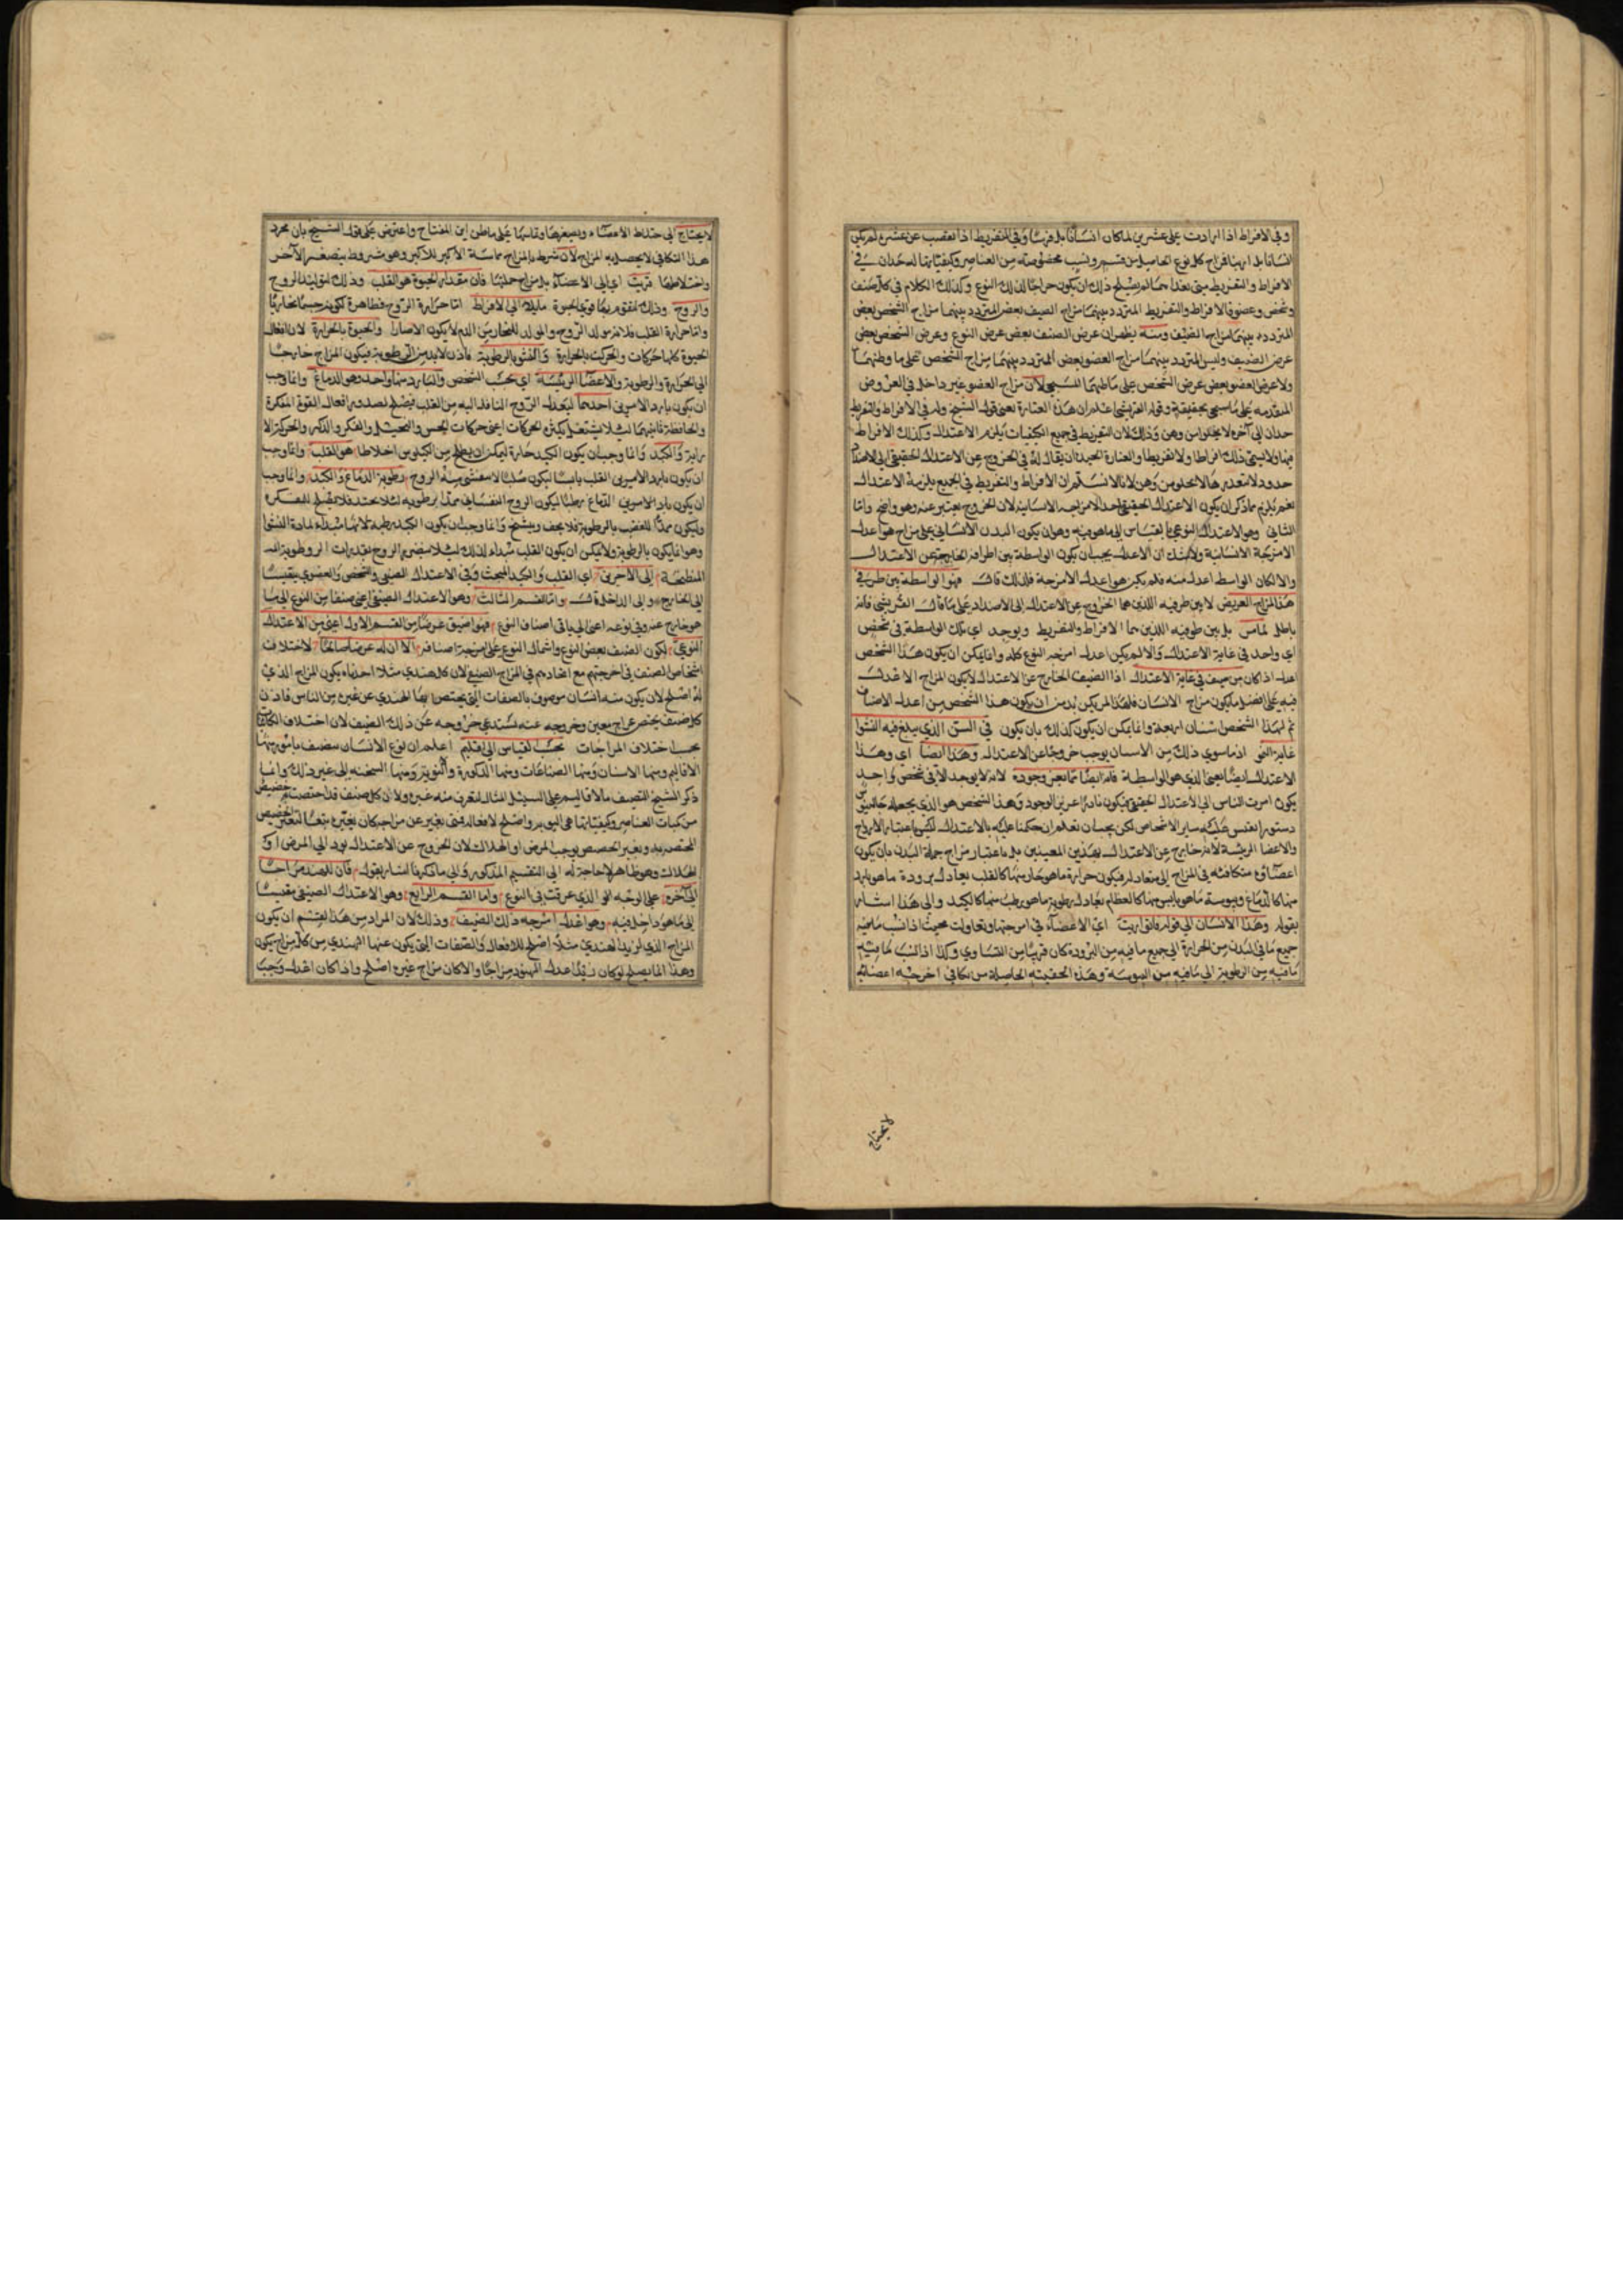 وفي الافراط اذا ازدادت على عشرين لما كان انسانا بل فرسا وفي التفريط اذا نقصت عن عشرة لم يكن
انسانا بل ارنبا فمزاج كل نوع انما يحصل من قسم ونسب مخصوصة من العناصر وكيفياتها له حدان في
الافراط والتفريط متى تعداهما لم يصلح ذلك ان يكون مزاجا لذلك النوع وكذلك الكلام في كل صنف
وشخص وعضو في الافراط والتفريط المتردد بينهما مزاج الصنف بعض المتردد بينهما مزاج الشخص بعض
المتردد بينهما مزاج الصنف ومنه يظهر ان عرض الصنف بعض عرض النوع وعرض الشخص بعض
عرض الصنف وليس المتردد بينهما مزاج العضو بعض المتردد بينهما مزاج الشخص على ما وظنهما
ولا عرض العضو بعض عرض الشخص على ما ظنهما المسيحي لان مزاج العضو غير داخل في العروض
المتقدمة على ما سيجي تحقيقه وقوله القرشي اعلم ان هذه العبارة يعني قول الشيخ وله في الافراط والتفريط
حدان الى آخره لا يخلو من وهن وذلك لان التفريط في جميع الكيفيات يلزم الاعتدال وكذلك الافراط
فيها ولا يسمى ذلك افراطا ولا تفريطا والعبارة الجيدة ان يقال له في الخروج عن الاعتدال الحقيقي الى الاضداد
حدود لا تتعداها لا تخلو من وهن لانا لا نسلم ان الافراط والتفريط في الجميع يلزمه الاعتدال
نعم يلزم مما ذكر ان يكون الاعتدال الحقيقي احد الامزجة الانسانية لان الخروج يعتبر عنه وهو واضح واما
الثاني وهو الاعتدال النوعي بالقياس الى ما هو فيه وهو ان يكون البدن الانساني على مزاج هو اعدل
الامزجة الانسانية ولا شك ان الاعدل يجب ان يكون الواسطة بين اطرافه الخارجة عن الاعتدال
والا لكان الواسط اعدل منه فلم يكن هو اعدل الامزجة فلذلك قال فهو الواسطة بين طرفي
هذا المزاج العريض لا بين طرفيه اللذين هما الخروج عن الاعتدال الى الاضداد على ما قال القرشي فانه
باطل لما مر بل بين طرفيه اللذين هما الافراط والتفريط ويوجد اي تلك الواسطة في شخص
اي واحد في غاية الاعتدال والا لم يكن اعدل امزجة النوع كله وانما يمكن ان يكون هذا الشخص
اعدل اذا كان من صنف في غاية الاعتدال اذا الصنف الخارج عن الاعتدال لا يكون المزاج الاعدل
فيه على افضل ما يكون مزاج الانسان فلهذا لم يكن بد من ان يكون هذا الشخص من اعدل الاصناف
ثم لهذا الشخص اسنان اربعة وانما يمكن ان يكون كذلك بان يكون في السن الذي يبلغ فيه النشوا
غاية النمو اذ ما سوى ذلك من الاسنان يوجب خروجا عن الاعتدال وهذا ايضا اي وهذا
الاعتدال ايضا يعني الذي هو الواسطة فانه ايضا مما يعز وجوده لانه لا يوجد الا في شخص واحد
يكون اقرب الناس الى الاعتدال الحقيقي فيكون نادرا عزيز الوجود وهذا الشخص هو الذي يجعله جالينوس
دستورا تقتس عليه ساير الاشخاص لكن يجب ان تعلم ان حكمنا عليه بالاعتدال ليس باعتبار الارواح
والاعضا الرئيسة لانه خارج عن الاعتدال بهذين المعنيين بل باعتبار مزاج جملة البدن بان يكون
اعضاؤه متكافئة في المزاج الى متعادلة فيكون حرارة ما هو حار منها كالقلب يعادل برودة ما هو بارد
منها كالدماغ ويبوسة ما هو يابس منها كالعظام يعادل رطوبة ما هو رطب منها كالكبد والى هذا اشار
بقوله وهذا الانسان الى قوله فاتى قربت اي الاعضاء في امزجتها وتعاولت بحيث اذا نسب ما فيه
جميع ما في البدن من الحرارة الى جميع ما فيه من البرودة كان قريبا من التساوي وكذا اذا نسب ما فيه
ما فيه من الرطوبة الى ما فيه من اليبوسة وهذه الحقيقية الحاصلة من تكافي امزجته اعضائه
لا يحتاج
لا يحتاج الى اختلاط الاعضاء وتصغيرها وتماسها على ما ظن ابن المفتاح واعترض على قول الشيخ بان مجرد
هذا التكافي لا يحصل به المزاج لان شرط المزاج مماسة الاكبر للاكبر وهو مشروط بتصغير الآخر
واختلاطها قربت اي الى الاعضاء بل مزاج جملتها فان مقدار الحيوة هو القلب وذلك لتوليد الروح
والروح وذلك لتقوم بها قوى الحيوة مايلان الى الافراط اما حرارة الروح فظاهرة لكونه جسما بخاريا
واما حرارة القلب فلانه مولد الروح والمولد للبخار من الدم لا يكون الا حارا والحيوة بالحرارة لان افعال
الحيوة كلها حركات والحركة بالحرارة والنشو بالرطوبة فاذن لابد من الرطوبة فيكون المزاج خارجا
الى الحرارة والرطوبة والاعضا الرئيسة اي بحسب الشخص والبارد منها واحد وهو الدماغ وانما وجب
ان يكون بارد الامرين احدهما ليعدل الروح النافذ اليه من القلب فيصلح لصدور افعال القوة المفكرة
والحافظة وثانيهما لئلا يشتعل بكثرة الحركات اعني حركات الحس والتخيل والفكر والذكر والحركة الا
رادية والكبد وانما وجب ان يكون الكبد حارة ليمكن ان يطبخ من الكيلوس اخلاطا هو القلب وانما وجب
ان يكون يابسه لامرين القلب يابسا ليكون صلبا لا منفشي منه الروح رطوبة الدماغ والكبد وانما وجب
ان يكون بارد لامرين الدماغ رطبا ليكون الروح النفساني ممدا برطوبة لئلا يحتد فلا يصلح للتفكر
وليكون ممدا للعصب بالرطوبة فلا يجف ويشنج وانما وجب ان يكون الكبد رطبة لانها مبداء لمادة النشوا
وهو انما يكون بالرطوبة ولا يمكن ان يكون القلب مبداء لذلك لئلا
المنطبخة الى الاخرين اي القلب والكبد المبحث وفي الاعتدال الصنفي والشخصي والعضوي مقيسا
الى الخارج والى الداخل قال واما القسم الثالث وهو الاعتدال الصنفي اعني صنفا من النوع الى ما
هو خارج عنه وفي نوعه اعني الى باقي اصناف النوع فهو اضيق عرضا من القسم الاول اعني من الاعتدال
النوعي لكون الصنف بعض النوع واشتمال النوع على امزجة اصنافه الا ان له عرضا صالحا لاختلاف
اشخاص الصنف في امزجتهم مع اتحادهم في المزاج الصنفي لان كل هندي مثلا احد ما يكون المزاج الذي
له اصلح لان يكون منه انسان موصوف بالصفات التي يختص بها الهندي عن غيره من الناس فاذن
كل صنف يختص بمزاج معين وخروجه عنه يستدعي خروجه عن ذلك الصنف لان اختلاف الكاينات
بحسب اختلاف المزاجات بحسب القياس الى اقليم اعلم ان نوع الانسان مصنف بامور منها
الاقاليم ومنها الاسنان ومنها الصناعات ومنها الذكورة والانوثة ومنها السحنه الى غير ذلك وانما
ذكر الشيخ التصنيف بالاقاليم على السبيل المثال لتعرف منه غيره ولان كل صنف قد اختص بتخصيص
من كميات العناصر وكيفياتها هي اليق به واصلح لافعاله فمتى تغير عن مزاجه كان تغيره متبعا لتغير التخصيص
المختص به وتغير التخصيص يوجب المرض او الهلاك لان الخروج عن الاعتدال يودي الى المرض او
الهلاك وهو ظاهر لا حاجة له الى التقسيم المذكور والى ما ذكرنا اشار بقوله فان للهند مزاجا
الى آخره على الوجه الذي عرفت في النوع واما القسم الرابع وهو الاعتدال الصنفي مقيسا
الى ما هو داخل فيه وهو اعدل امزجه ذلك الصنف وذلك لان المراد من هذا القسم ان يكون
المزاج الذي لزيد الهندي مثلا اصلح للافعال والصفات التي يكون عنها الهندي من كل مزاج يكون
وهذا انما يصلح لو كان زيد اعدل الهنود مزاجا والا كان مزاج غيره اصلح واذا كان اعدل وجب